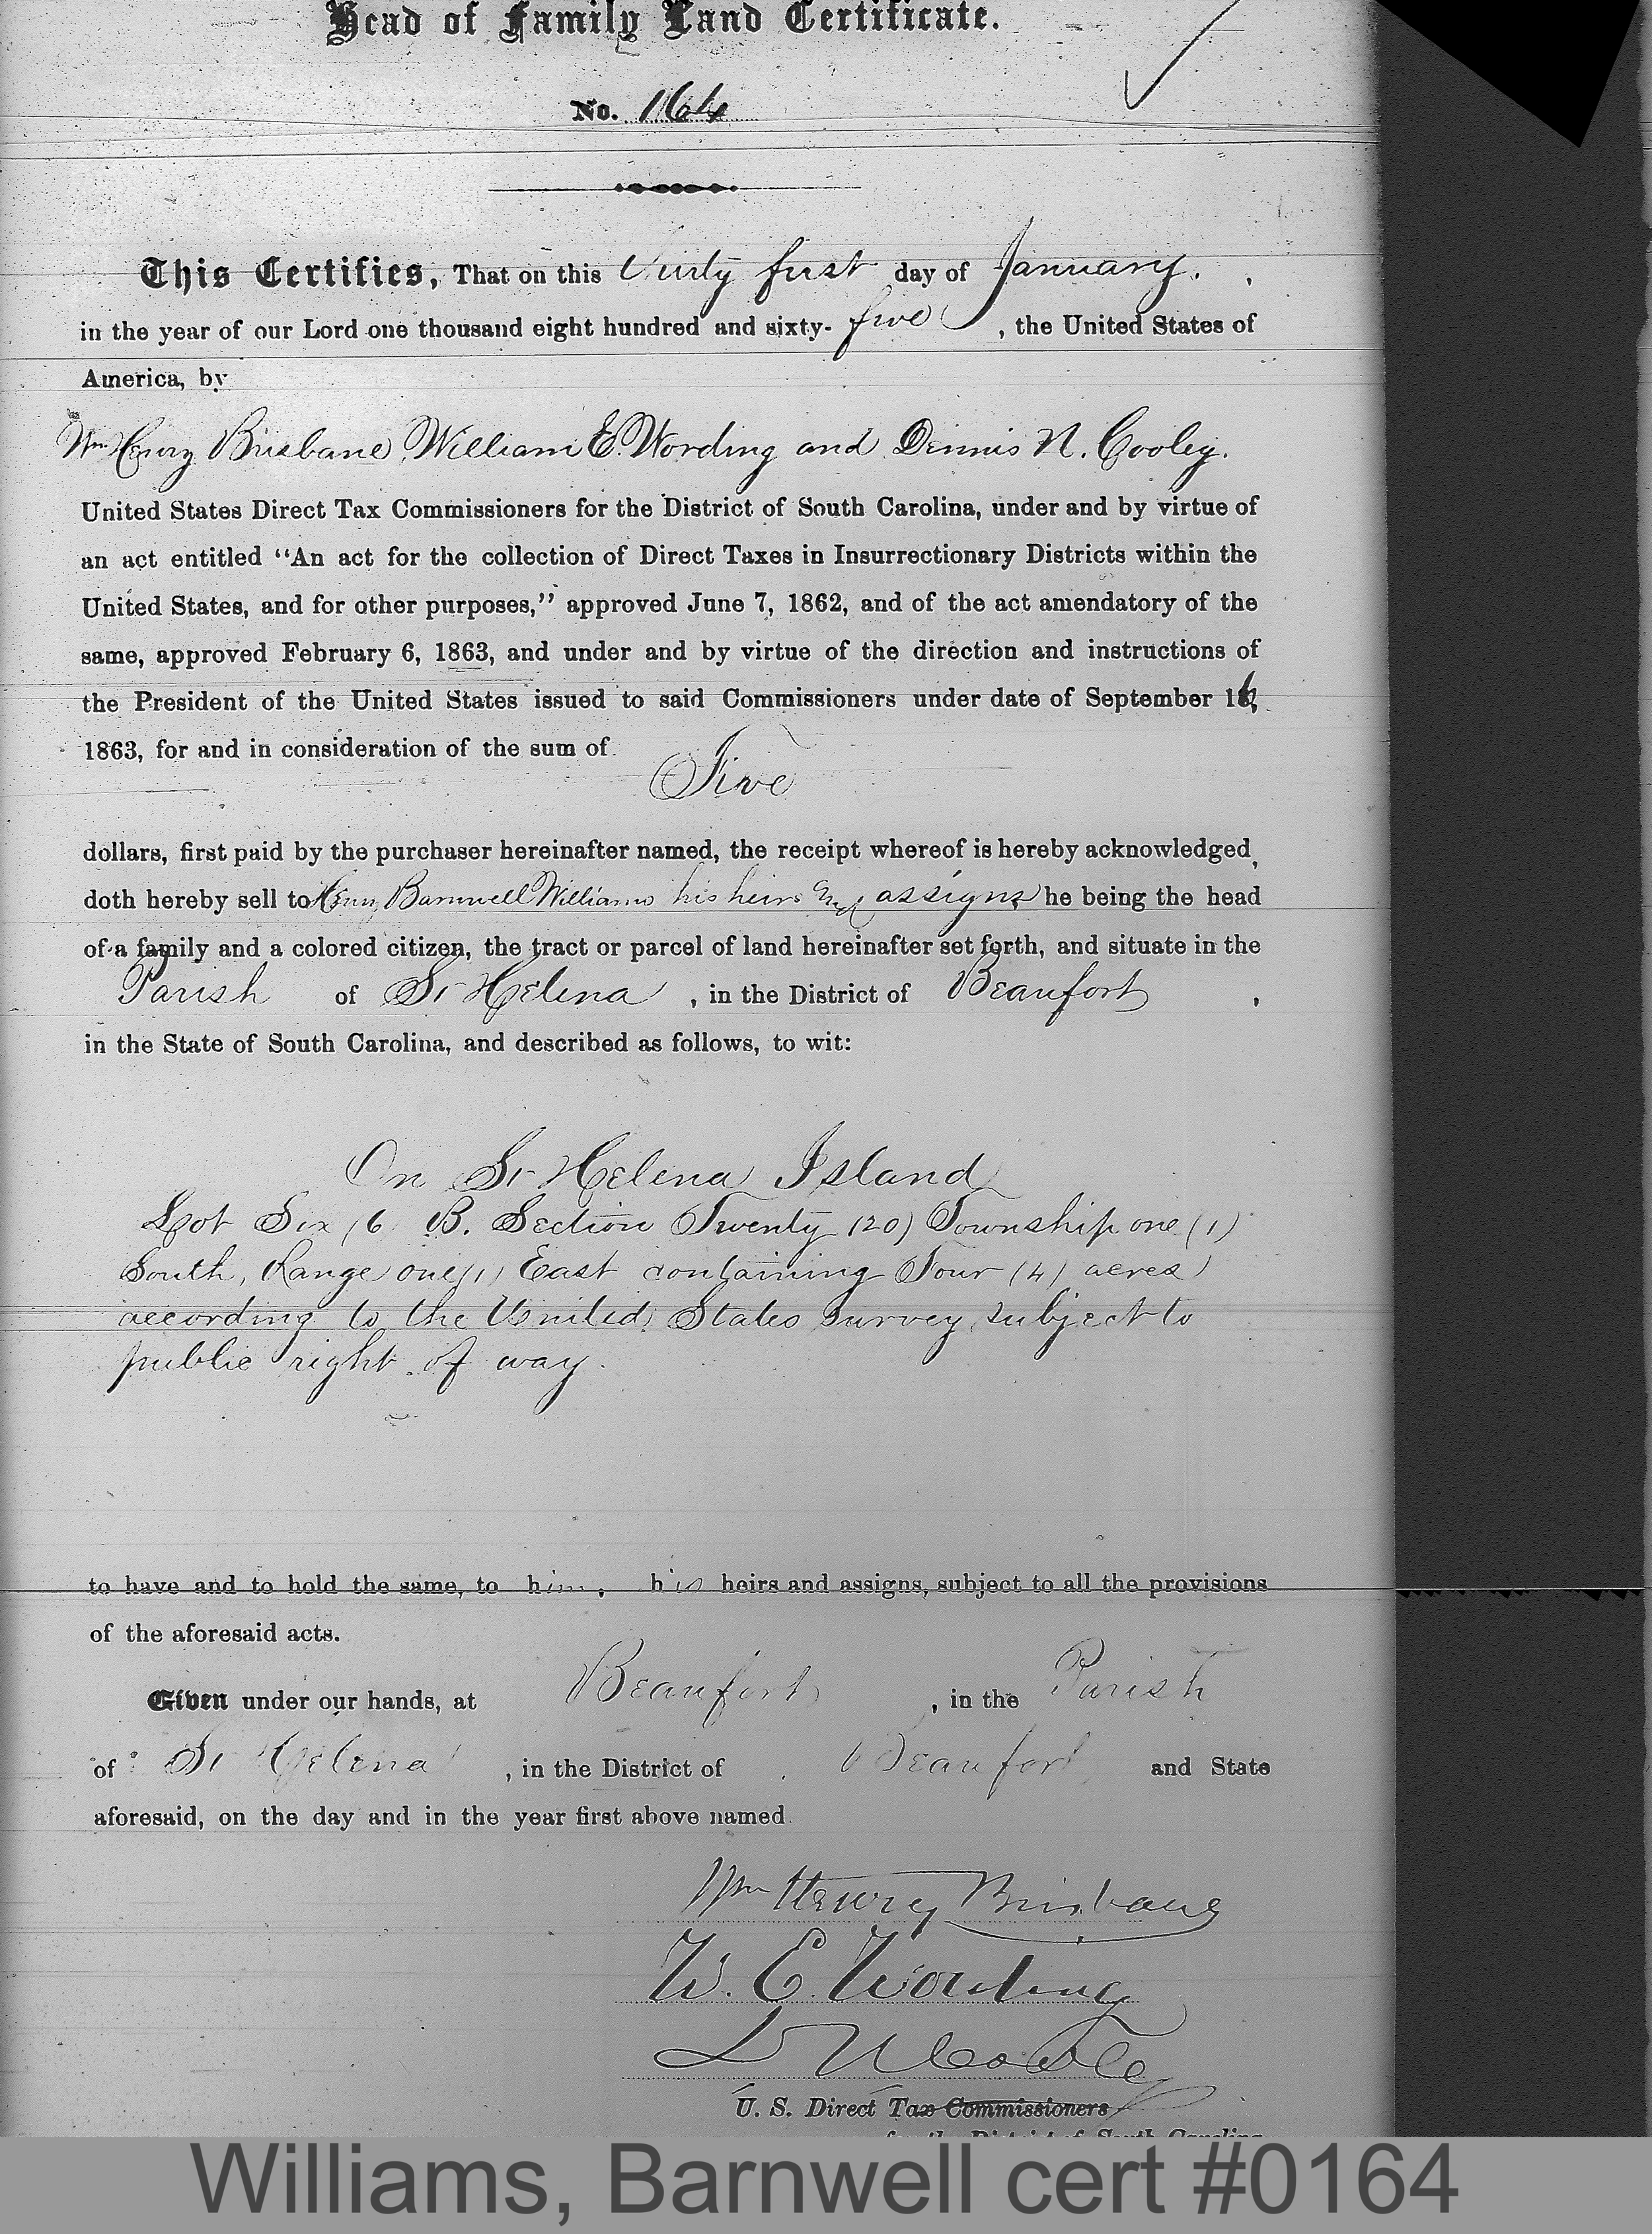 Head of Family Land Certificate.
No. 164
This Certifies, That on this Thirty first day of January. ,
in the year of our Lord one thousand eight hundred and sixty- five , the United States of
America, by
Wm Henry Brisbane, William E. Wording and Dennis N. Cooley.
United States Direct Tax Commissioners for the District of South Carolina, under and by virtue of
an act entitled "An act for the collection of Direct Taxes in Insurrectionary Districts within the
United States, and for other purposes," approved June 7, 1862, and of the act amendatory of the
same, approved February 6, 1863, and under and by virtue of the direction and instructions of
the President of the United States issued to said Commissioners under date of September 16,
1863, for and in consideration of the sum of
Five
dollars, first paid by the purchaser hereinafter named, the receipt whereof is hereby acknowledged,
doth hereby sell to Henry Barnwell Williams his heirs and assigns he being the head
of a family and a colored citizen, the tract or parcel of land hereinafter set forth, and situate in the
Parish of St Helena , in the District of Beaufort ,
in the State of South Carolina, and described as follows, to wit:
On St Helena Island
Lot Six (6 B. Section Twenty (20) Township one (1)
South, Range one (1) East containing Four (4) acres
according to the United States Survey, subject to
public right of way.
to have and to hold the same, to him, his heirs and assigns, subject to all the provisions
of the aforesaid acts.
Given under our hands, at Beaufort , in the Parish
of St Helena , in the District of Beaufort and State
aforesaid, on the day and in the year first above named.
Wm Henry Brisbane
W. E. Wording
D N Cooley
U. S. Direct Tax Commissioners
for the District of South Carolina
Williams, Barnwell cert #0164